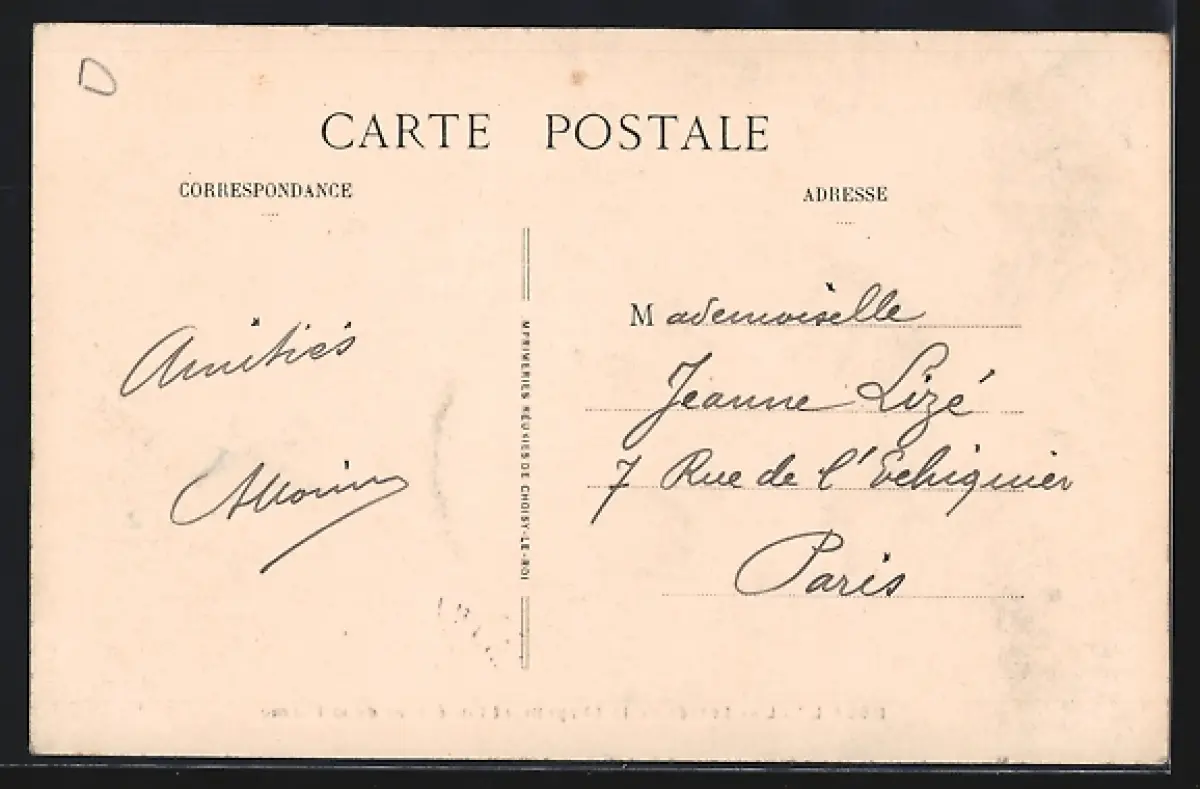 D
CARTE POSTALE
CORRESPONDANCE
Amitiés
IMPRIMERIES RÉUNIES DE CHOISY-LE-ROI
ADRESSE
Mademoiselle
Jeanne Lizé
7 Rue de l'Echiquier
Paris